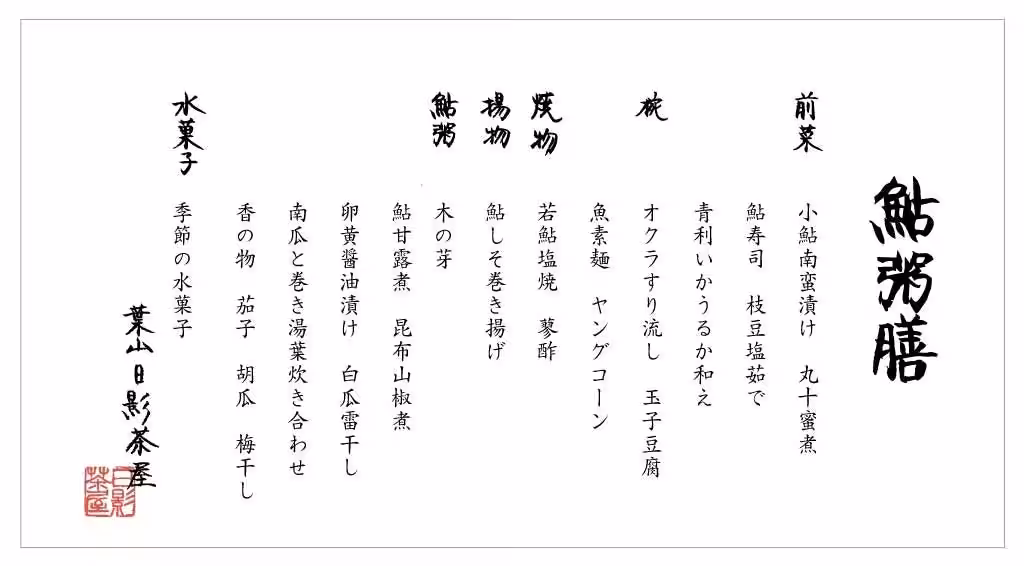 鮎粥膳
前菜
小鮎南蛮漬け　丸十蜜煮
鮎寿司　枝豆塩茹で
青利いかうるか和え
椀
オクラすり流し　玉子豆腐
魚素麺　ヤングコーン
焼物
若鮎塩焼　蓼酢
揚物
鮎しそ巻き揚げ
鮎粥
木の芽
鮎甘露煮　昆布山椒煮
卵黄醤油漬け　白瓜雷干し
南瓜と巻き湯葉炊き合わせ
香の物　茄子　胡瓜　梅干し
水菓子
季節の水菓子
葉山日影茶屋
日影茶屋